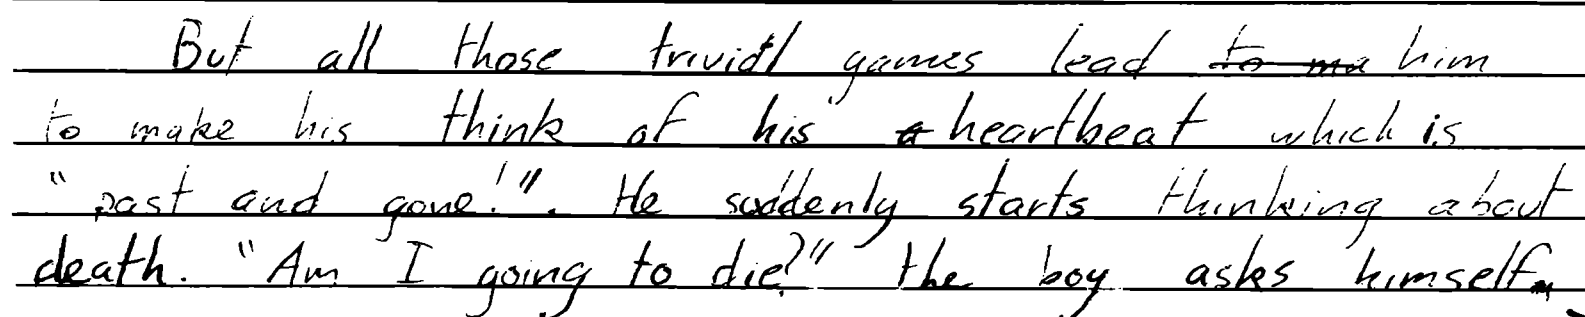 But all those trivial games lead him
to make his think of his heartbeat which is
"past and gone!". He suddenly starts thinking about
death. "Am I going to die?" the boy asks himself.